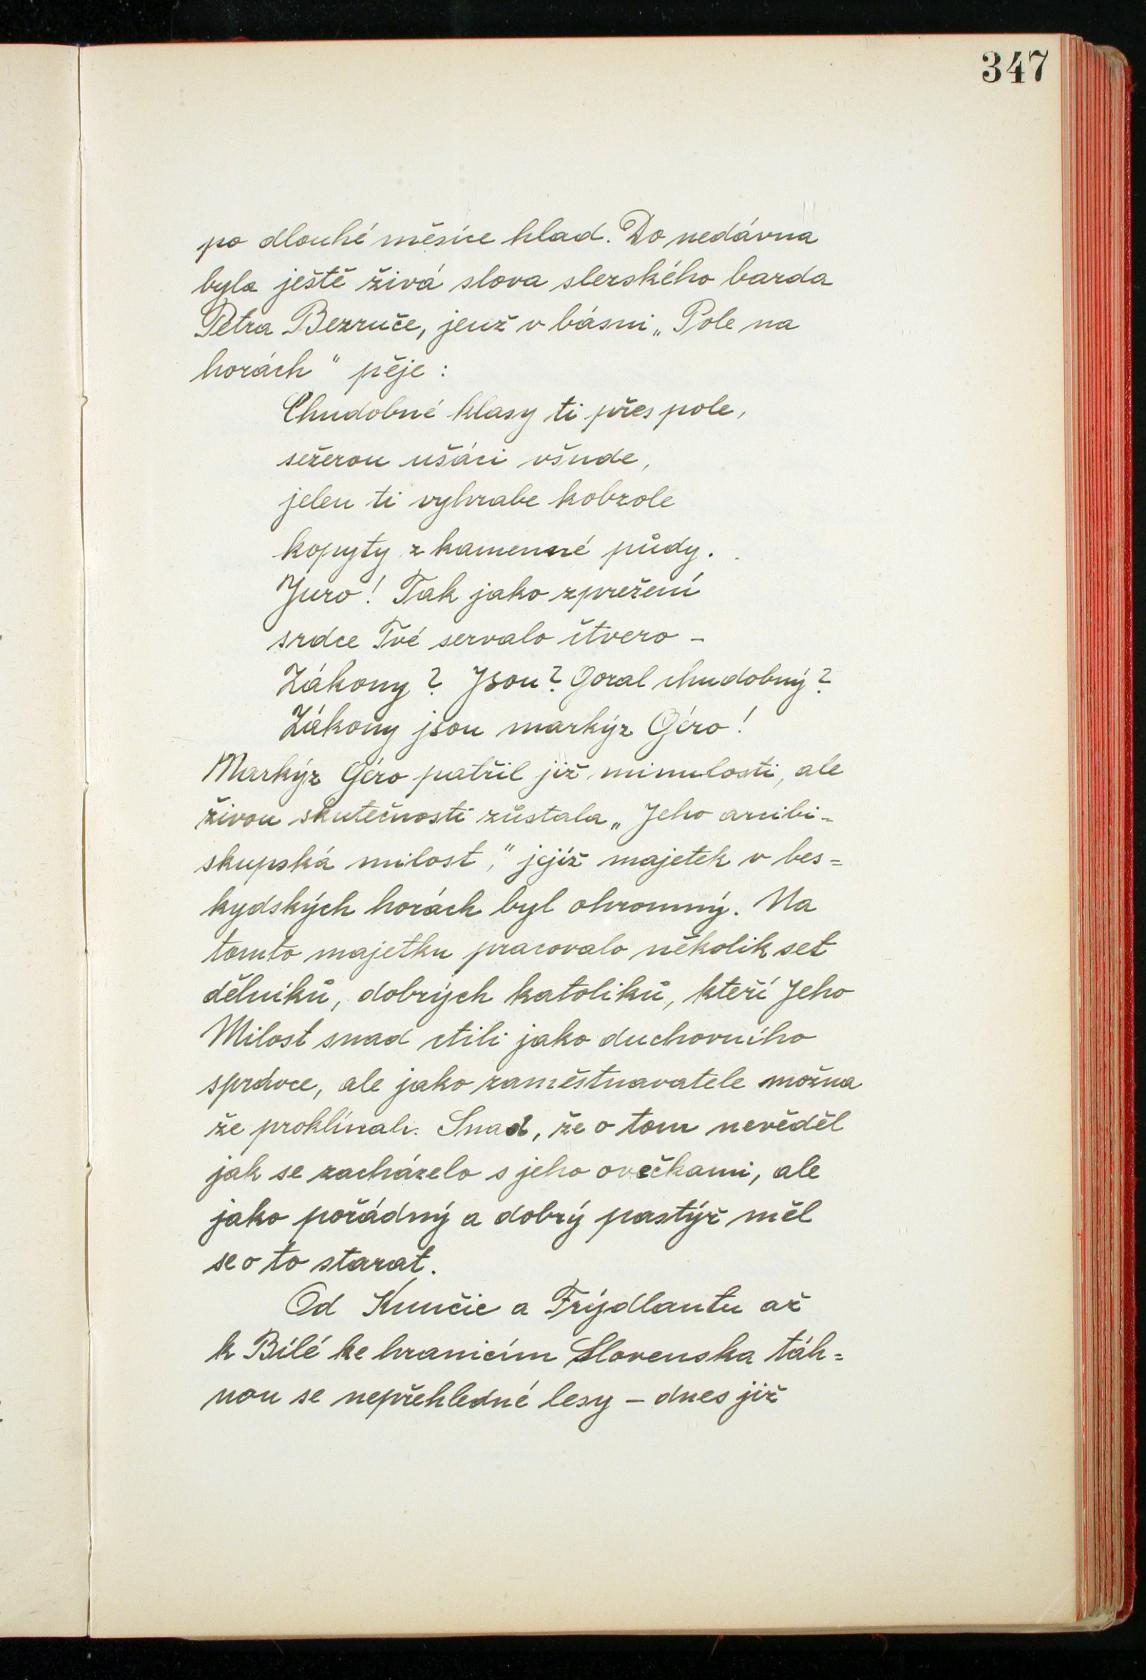 347
po dlouhé měsíce hlad. Do nedávna
byla ještě živá slova slezského barda
Petra Bezruče, jenž v básni „Pole na
horách" pěje :
Chudobné klasy ti přes pole,
sežerou ušáci všude,
jelen ti vyhrabe kobzole
kopyty z kamenné půdy.
Juro! Tak jako zprežení
srdce Tvé servalo čtvero –
Zákony? Jsou? Goral chudobný?
Zákony jsou markýz Géro!
Markýz Géro patřil již minulosti, ale
živou skutečností zůstala „Jeho arcibi=
skupská milost," jejíž majetek v bes=
kydských horách byl ohromný. Na
tomto majetku pracovalo několik set
dělníků, dobrých katolíků, kteří Jeho
Milost snad ctili jako duchovního
správce, ale jako zaměstnavatele možna
že proklínali. Snad, že o tom nevěděl
jak se zacházelo s jeho ovečkami, ale
jako pořádný a dobrý pastýř měl
se o to starat.
Od Kunčic a Frýdlantu až
k Bílé ke hranicím Slovenska táh=
nou se nepřehledné lesy – dnes již